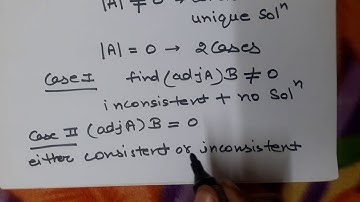 |A| ≠ 0 →
unique Solⁿ
|A| = 0 → 2 Cases
Case I find (adj A) B ≠ 0
inconsistent + no Solⁿ
Case II (adj A) B = 0
either consistent or inconsistent